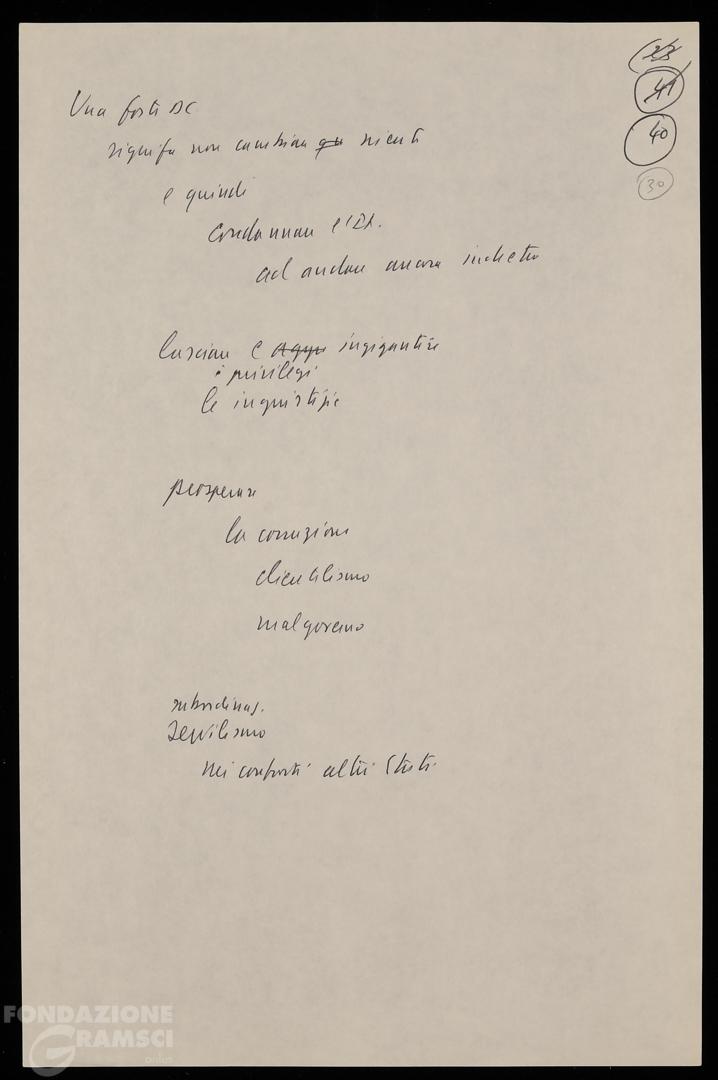 23
41
40
30
Una forte DC
signifa non cambiare qu niente
e quindi
condannare l'It.
ad andare ancora indietro
lasciare e ingigantire
i privilegi
le ingiustizie
prosperare
la corruzione
clientelismo
malgoverno
subordinaz.
servilismo
nei confronti altri Stati
FONDAZIONE
GRAMSCI
onlus